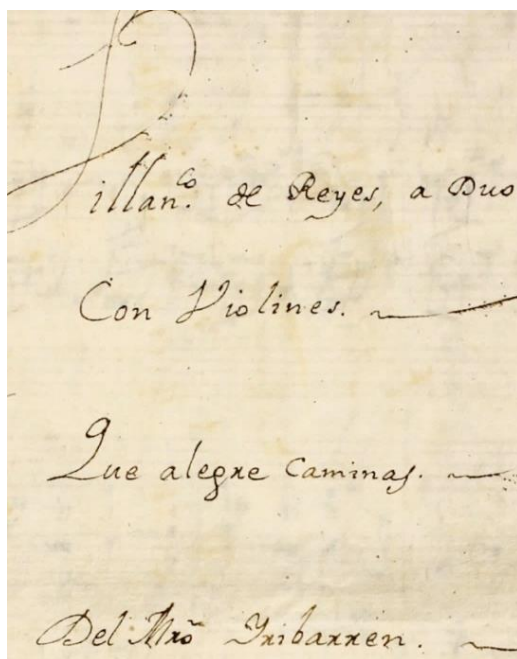 Villan.co de Reyes, a Duo
Con Violines.
Que alegre Caminas.
Del Mro Yribarren.